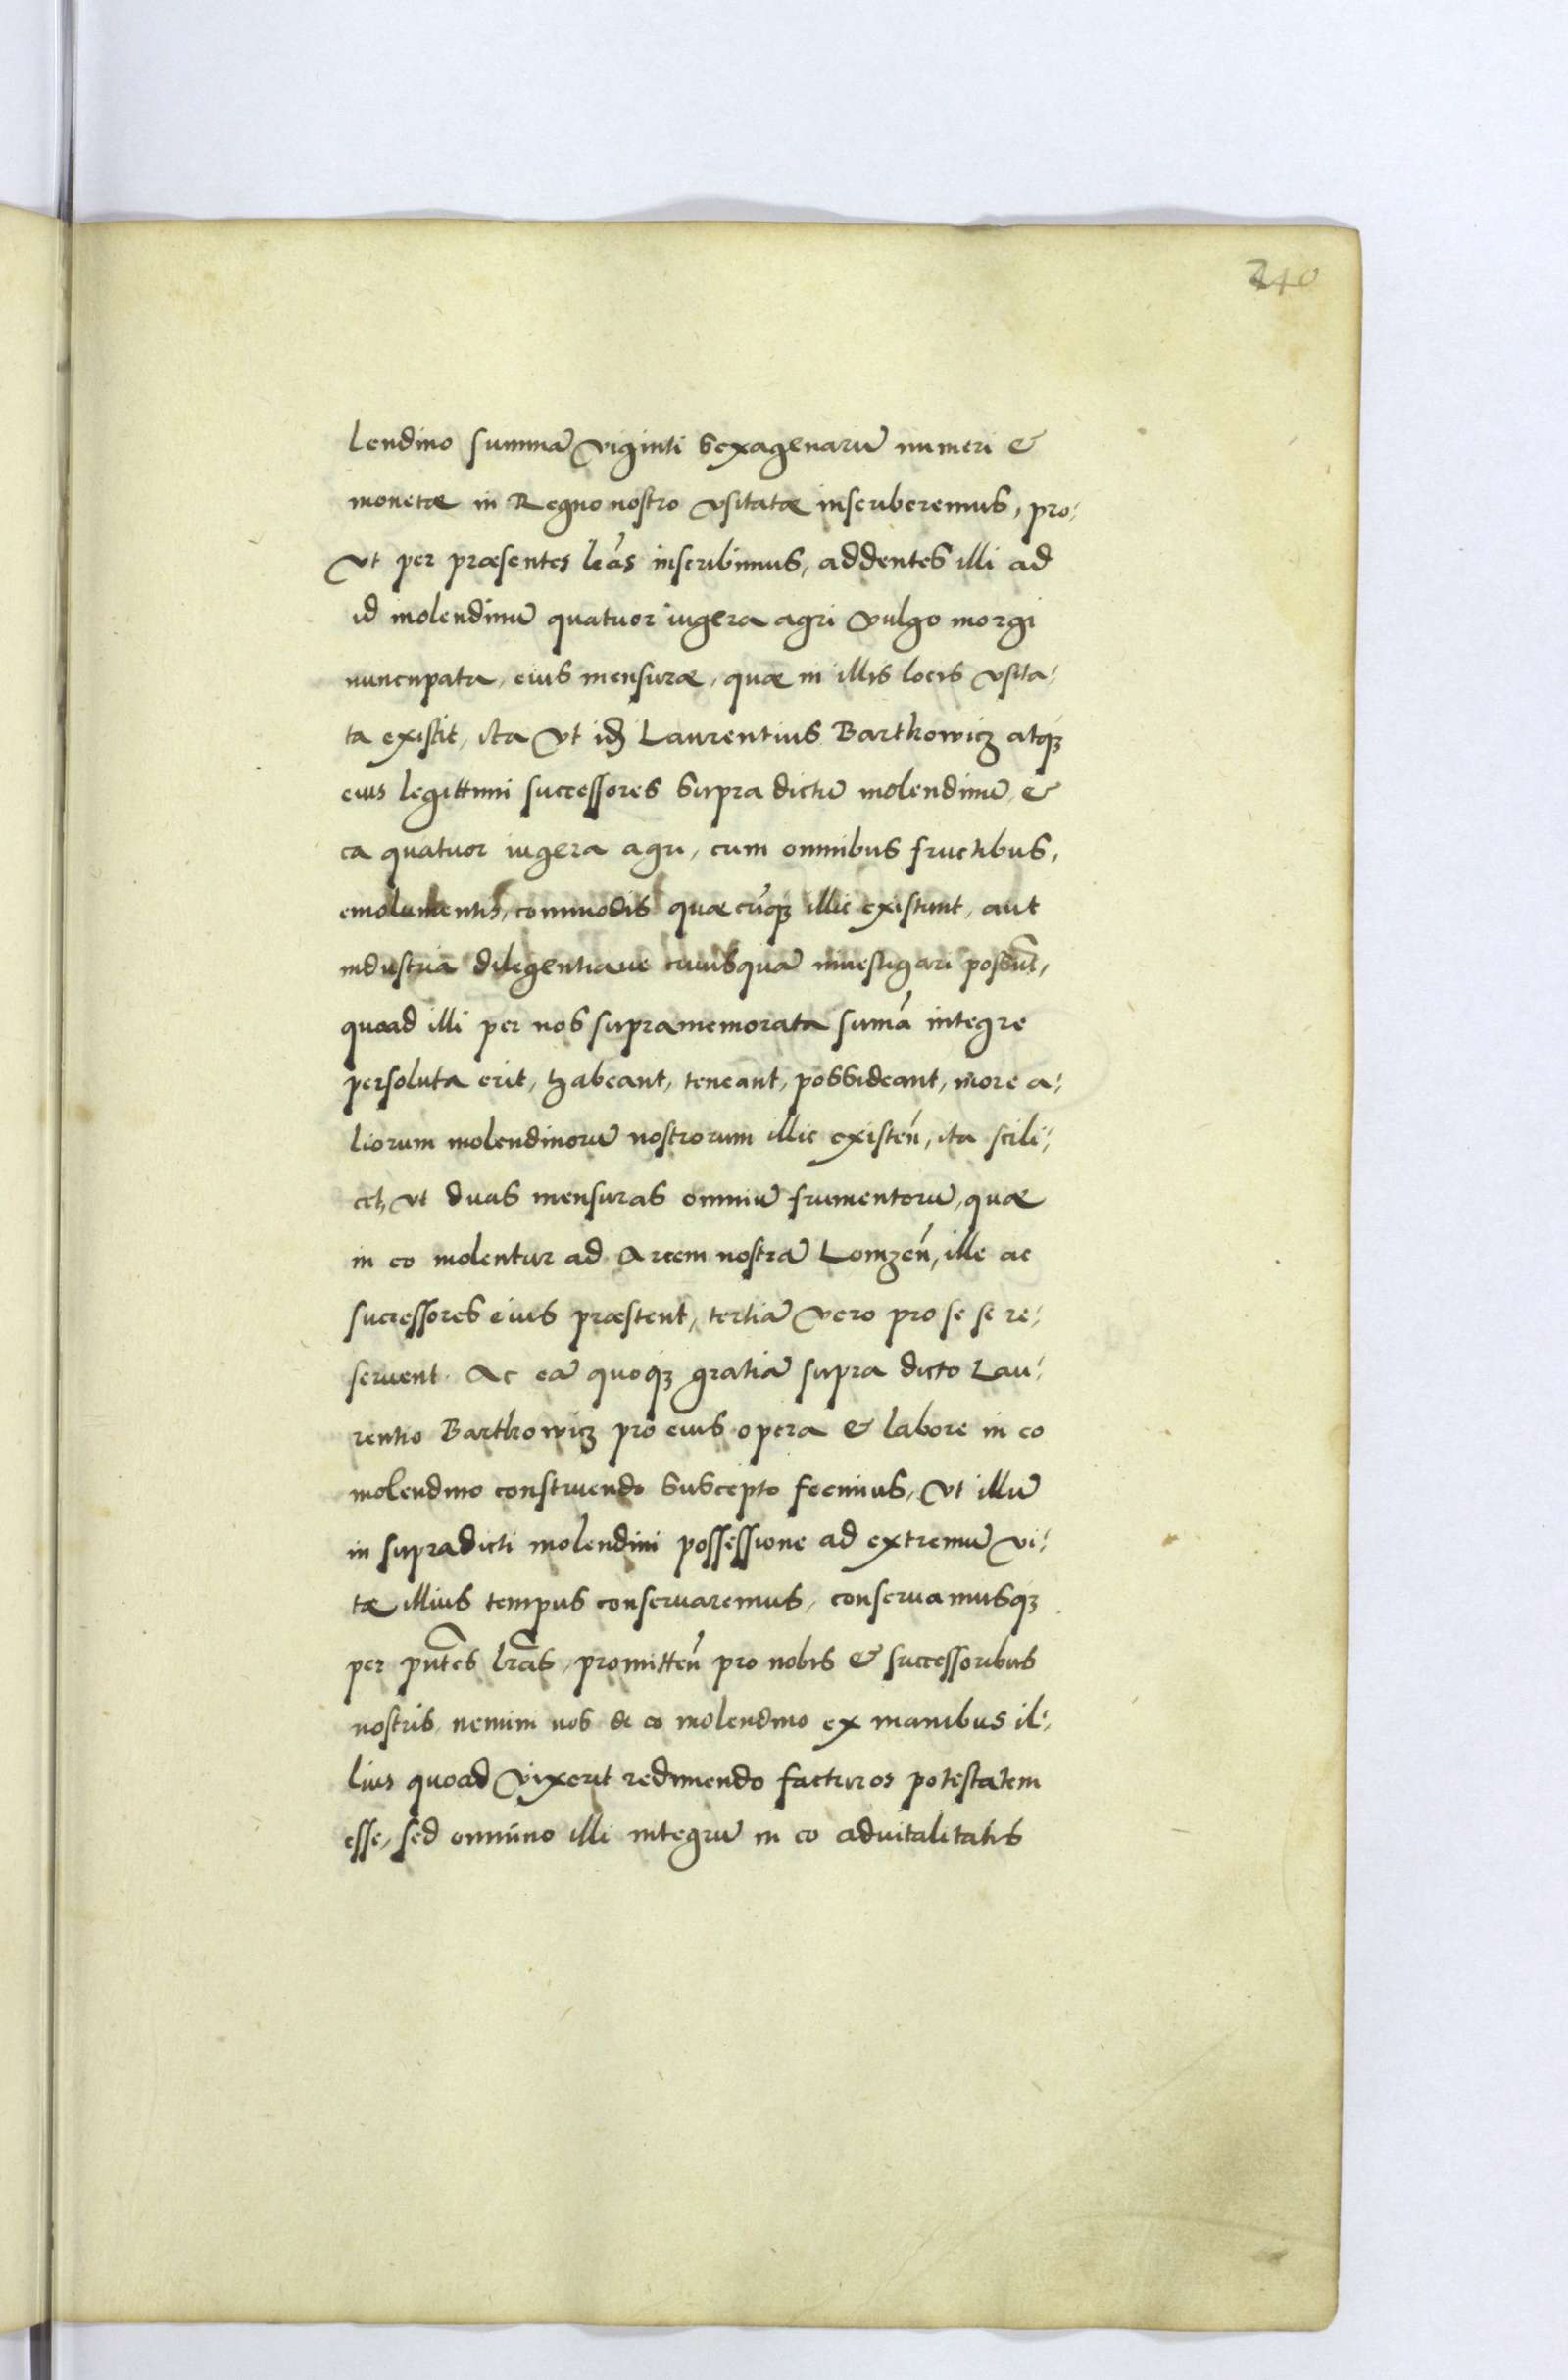 240
lendino summã viginti sexagenarũ numeri &
monetæ in Regno nostro vsitatæ inscriberemus, pro-
vt per præsentes lr̃as inscribimus, addentes illi ad
id molendinũ quatuor iugera agri vulgo morgi
nuncupata, eius mensuræ, quæ in illis locis vsita-
ta existit, ita vt idẽ Laurentius Bartkowicz atqꝫ
eius legittimi successores supra dictũ molendinũ, &
ea quatuor iugera agri, cum omnibus fructibus,
emolumentis, commodis quæcũqꝫ illic existunt, aut
industria diligentiaue cuiusquã inuestigari possũt,
quoad illi per nos supramemorata sum̃a integre
persoluta erit, habeant, teneant, possideant, more a-
liorum molendinorũ nostrorum illic existeñ, ita scili-
cet, vt duas mensuras omniũ frumentorũ, quæ
in eo molentur ad Arcem nostrã Lomzeñ, ille ac
successores eius præstent, tertiã vero pro se se re-
seruent. Ac eã quoqꝫ gratiã supra dicto Lau-
rentio Bartkowicz pro eius opera & labore in eo
molendino construendo suscepto fecimus, vt illũ
in supradicti molendini possessione ad extremũ vi-
tæ illius tempus conseruaremus, conseruamusqꝫ
per pñtes lr̃as, promitteñ pro nobis & successoribus
nostris, nemini nos de eo molendino ex manibus il-
lius quoad vixerit redimendo facturos potestatem
esse, sed omnino illi integrũ in eo aduitalitatis